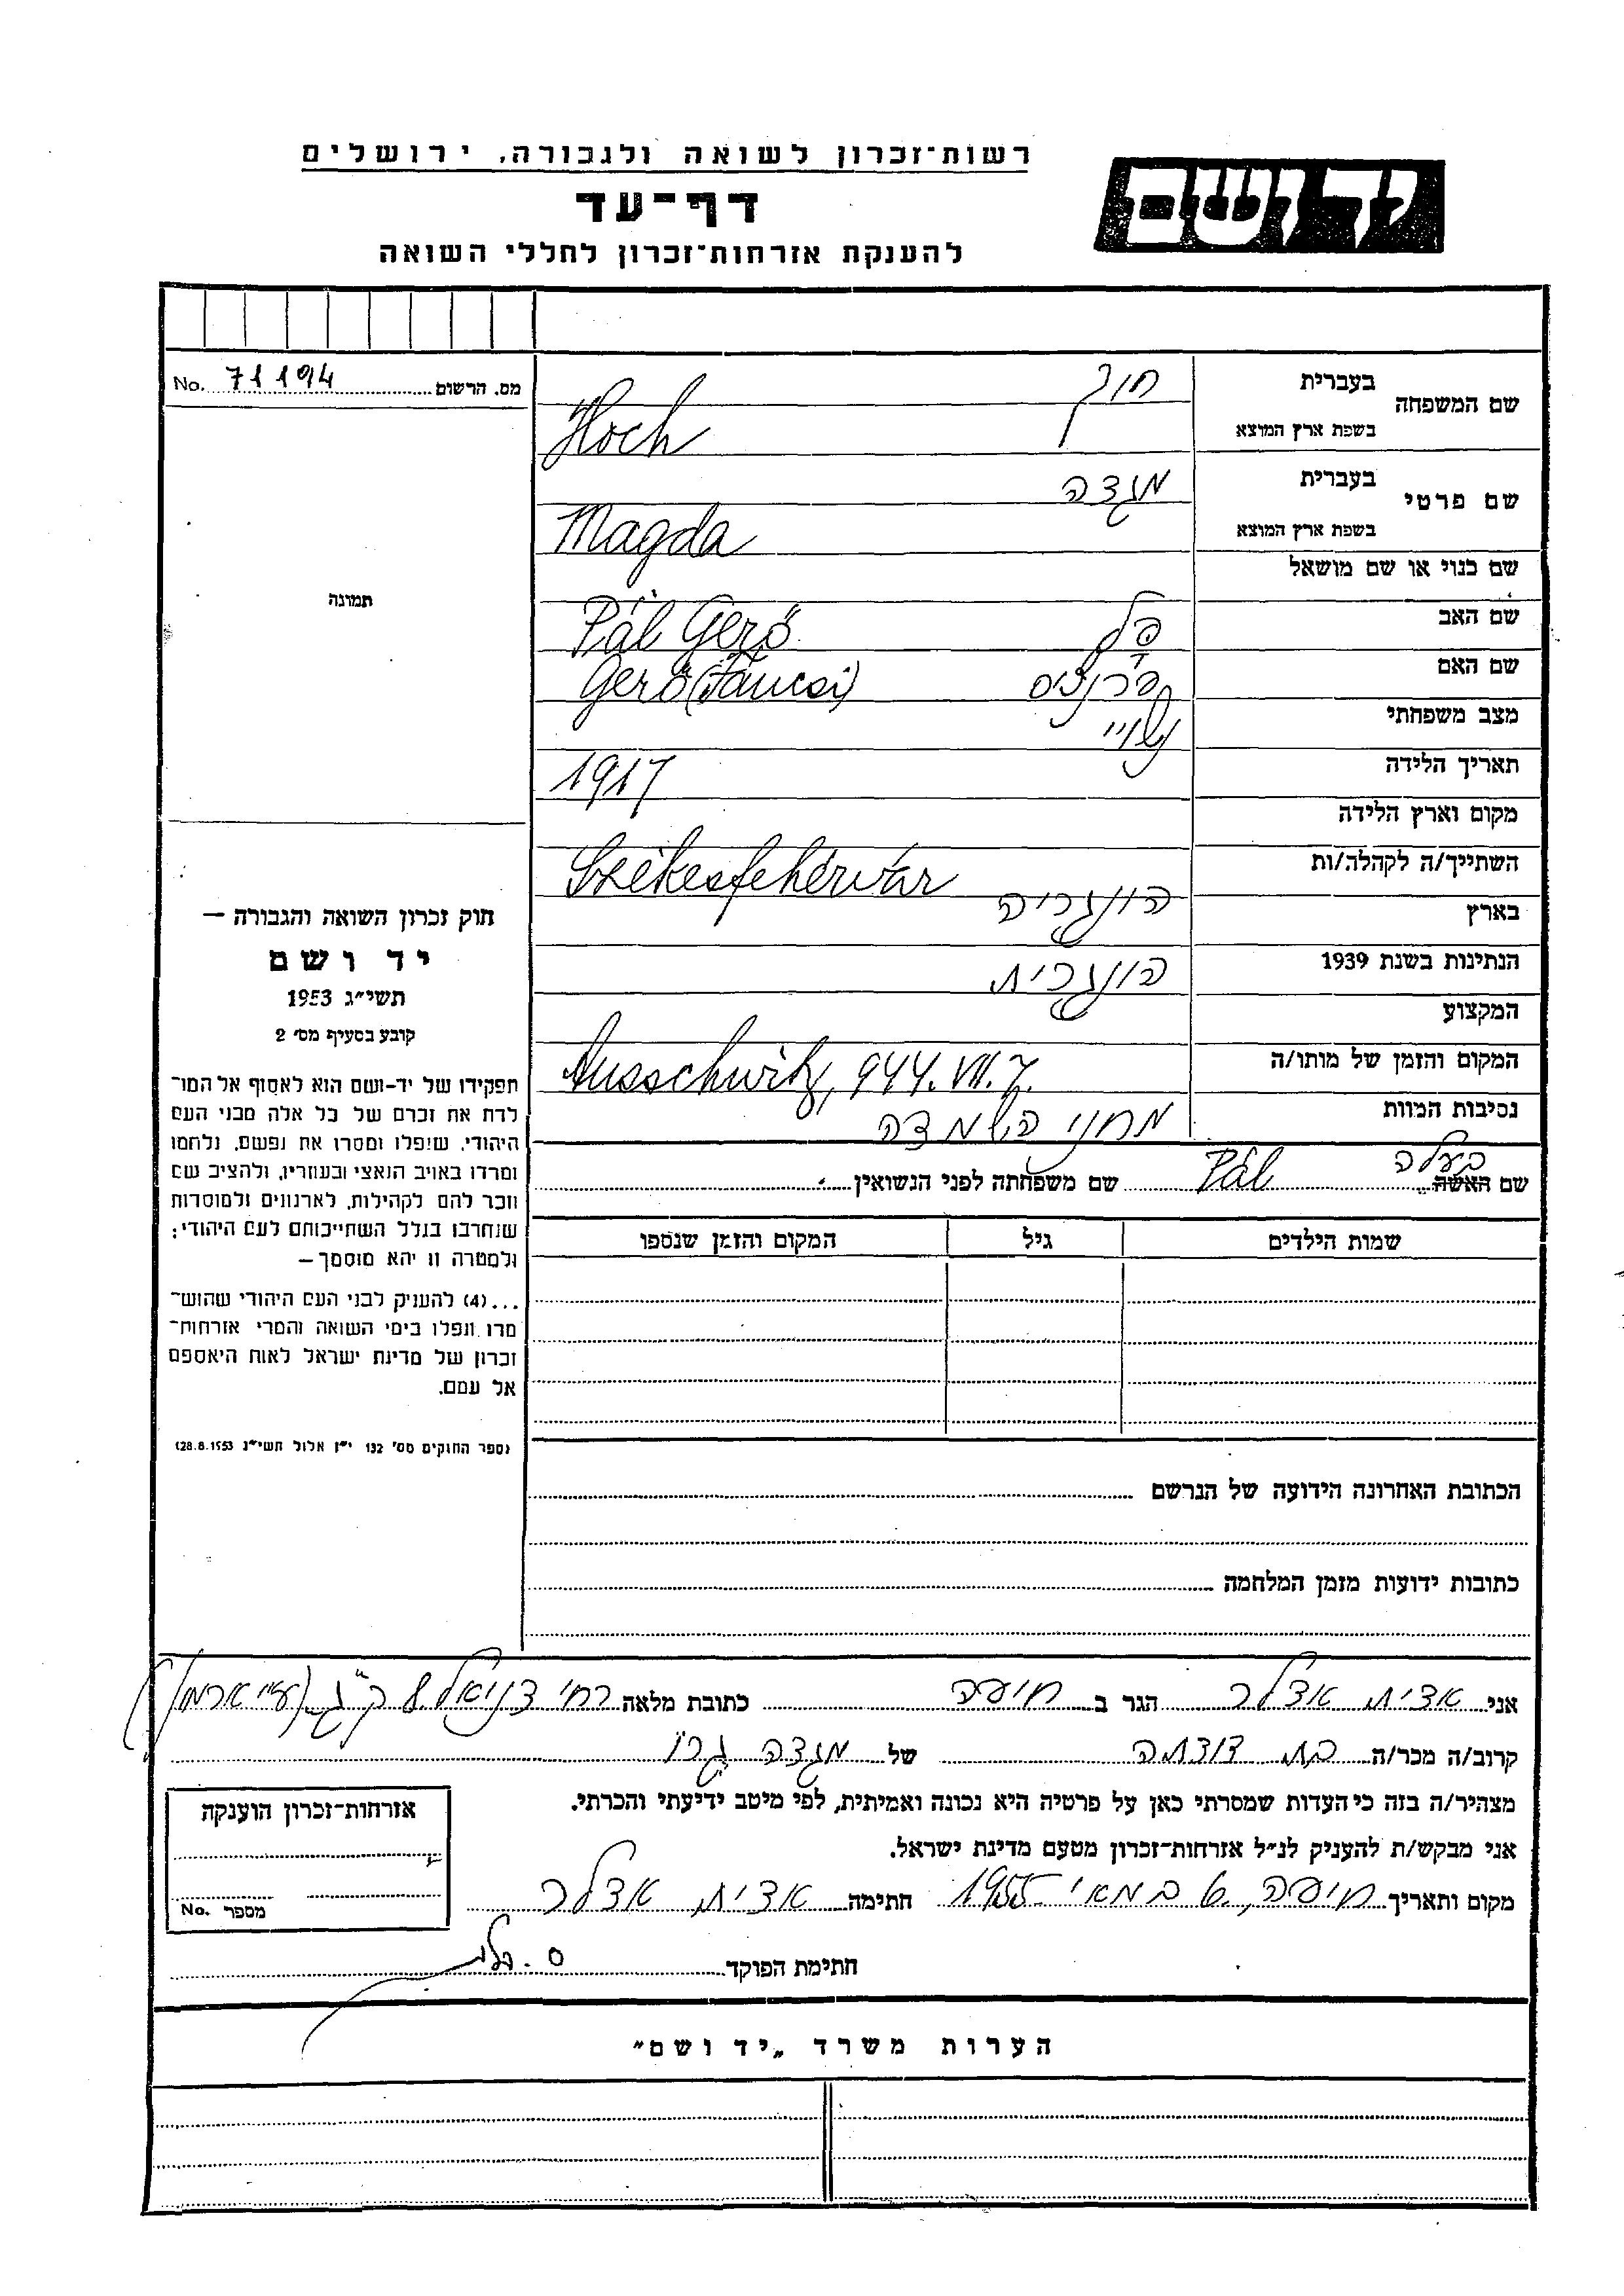 יד ושם
רשות-זכרון לשואה ולגבורה, ירושלים
דף-עד
להענקת אזרחות-זכרון לחללי השואה
מס. הרשום 71194 No.
תמונה
שם המשפחה בעברית חוך
בשפת ארץ המוצא Hoch
שם פרטי בעברית מגדה
בשפת ארץ המוצא Magda
שם כנוי או שם מושאל
שם האב פל Pál Gerő
שם האם פרנציס Gerő (Fáncsi)
מצב משפחתי נשוי
תאריך הלידה 1917
מקום וארץ הלידה
השתייך/ה לקהלה/ות Székesfehérvár
בארץ הונגריה
הנתינות בשנת 1939 הונגרית
המקצוע
המקום והזמן של מותו/ה Ausschwitz, 944. VII. 7.
נסיבות המוות מחני השמדה
שם האשה בעלה Pál שם משפחתה לפני הנשואין
שמות הילדים גיל המקום והזמן שנספו
חוק זכרון השואה והגבורה —
יד ושם
תשי"ג 1953
קובע בסעיף מס' 2
תפקידו של יד-ושם הוא לאסוף אל המו־
לדת את זכרם של כל אלה מבני העם
היהודי, שנפלו ומסרו את נפשם, נלחמו
ומרדו באויב הנאצי ובעוזריו, ולהציב שם
וזכר להם לקהילות, לארגונים ולמוסדות
שנחרבו בגלל השתייכותם לעם היהודי;
ולמטרה זו יהא מוסמך —
...(4) להעניק לבני העם היהודי שהוש־
מדו ונפלו בימי השואה והמרי אזרחות־
זכרון של מדינת ישראל לאות היאספם
אל עמם.
(ספר החוקים מס' 132 י"ז אלול תשי"ג 28.8.1953)
הכתובת האחרונה הידועה של הנרשם
כתובות ידועות מזמן המלחמה
אני אדית אדלר הגר ב חיפה כתובת מלאה רח' דניאל 8 ק"ג
קרוב/ה מכר/ה בת דודתה של מגדה גרו
מצהיר/ה בזה כי העדות שמסרתי כאן על פרטיה היא נכונה ואמיתית, לפי מיטב ידיעתי והכרתי.
אני מבקש/ת להעניק לנ"ל אזרחות-זכרון מטעם מדינת ישראל.
מקום ותאריך חיפה, 6 במאי 1955 חתימה אדית אדלר
חתימת הפוקד
אזרחות-זכרון הוענקה
מספר No.
הערות משרד „יד ושם"